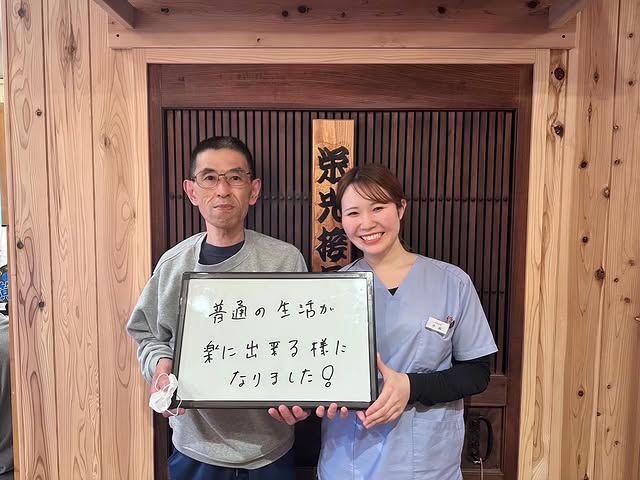 普通の生活が
楽に出来る様に
なりました!
栄光接骨